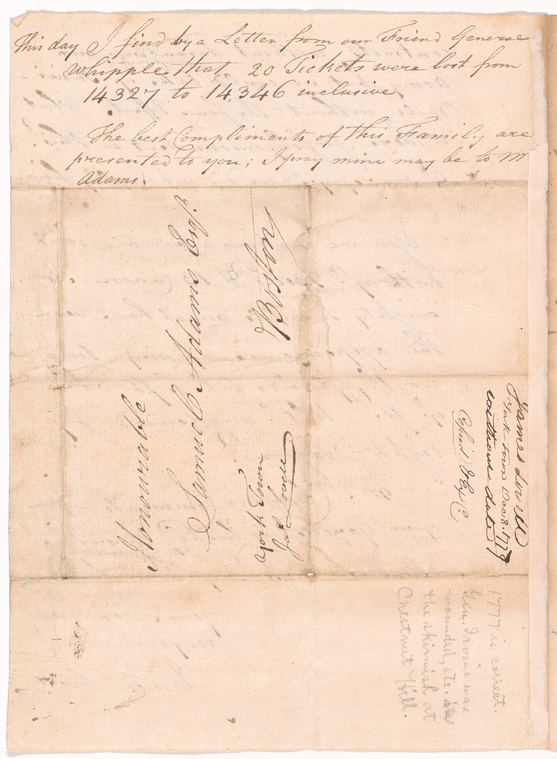 This day I find by a Letter from our Friend General
Whipple that 20 Tickets were lost from
14327 to 14,346 inclusive.
The best Compliments of this Family are
presented to you; I pray mine may be to Mrs
Adams.
Honourable
Samuel Adams Esqr.
Boston
York Town
Jas Lovell
James Lovell
York town Dec 8. 1777
without date
1777 is correct.
Gen. Irvine was
wounded, etc. in
the skirmish at
Chestnut Hill.